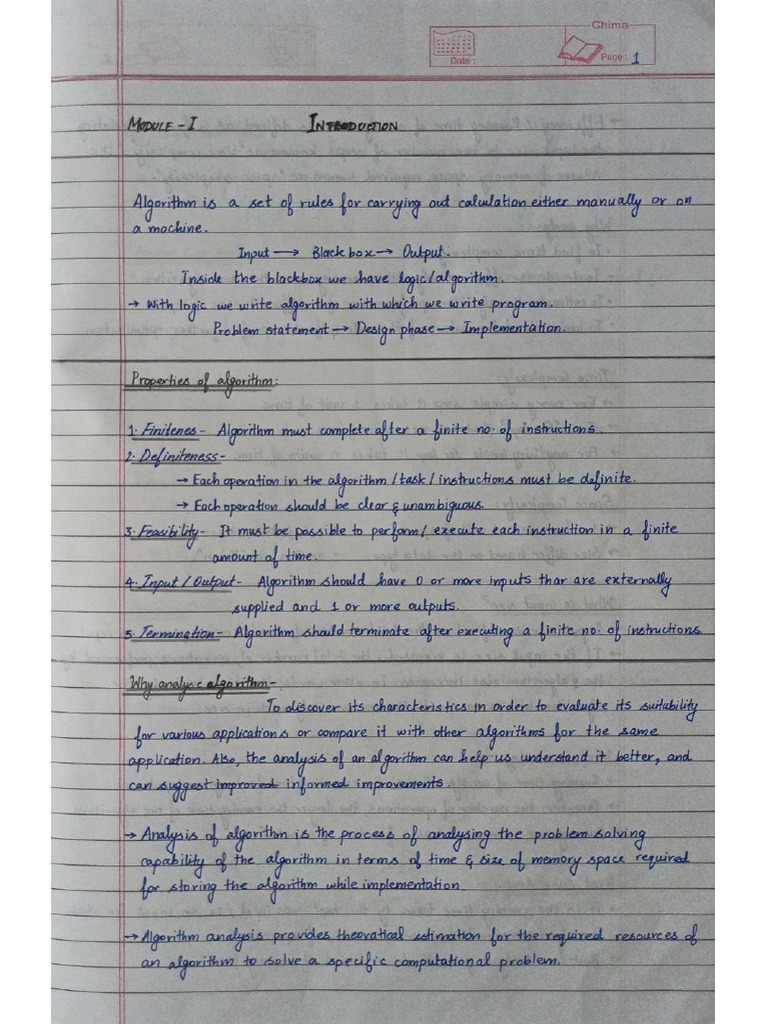 Chima
Date :
Page : 1
MODULE - I INTRODUCTION
Algorithm is a set of rules for carrying out calculation either manually or on
a machine.
Input → Black box → Output.
Inside the blackbox we have logic/algorithm.
→ With logic we write algorithm with which we write program.
Problem statement → Design phase → Implementation.
Properties of algorithm:
1. Finitenes - Algorithm must complete after a finite no. of instructions.
2. Definiteness -
→ Each operation in the algorithm / task / instructions must be definite.
→ Each operation should be clear & unambiguous.
3. Feasibility - It must be possible to perform / execute each instruction in a finite
amount of time.
4. Input / Output - Algorithm should have 0 or more inputs thar are externally
supplied and 1 or more outputs.
5. Termination - Algorithm should terminate after executing a finite no. of instructions.
Why analyse algorithm -
To discover its characteristics in order to evaluate its suitability
for various applications or compare it with other algorithms for the same
application. Also, the analysis of an algorithm can help us understand it better, and
can suggest improved informed improvements
→ Analysis of algorithm is the process of analysing the problem solving
capability of the algorithm in terms of time & size of memory space required
for storing the algorithm while implementation.
→ Algorithm analysis provides theoratical estimation for the required resources of
an algorithm to solve a specific computational problem.